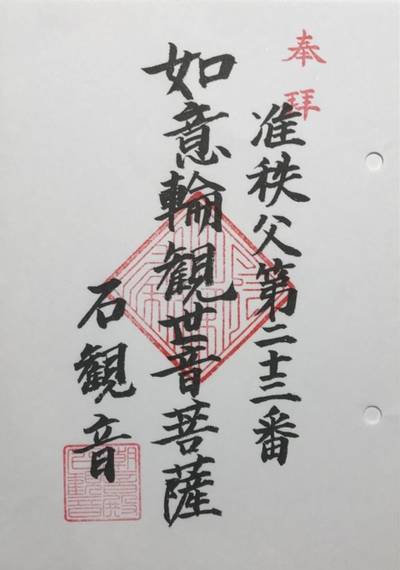 奉拝
准秩父第二十三番
如意輪観世音菩薩
石観音